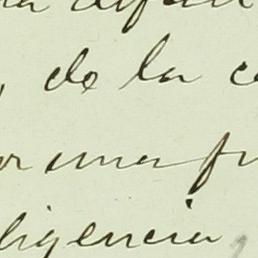 , de la c
or una fu
ligencia